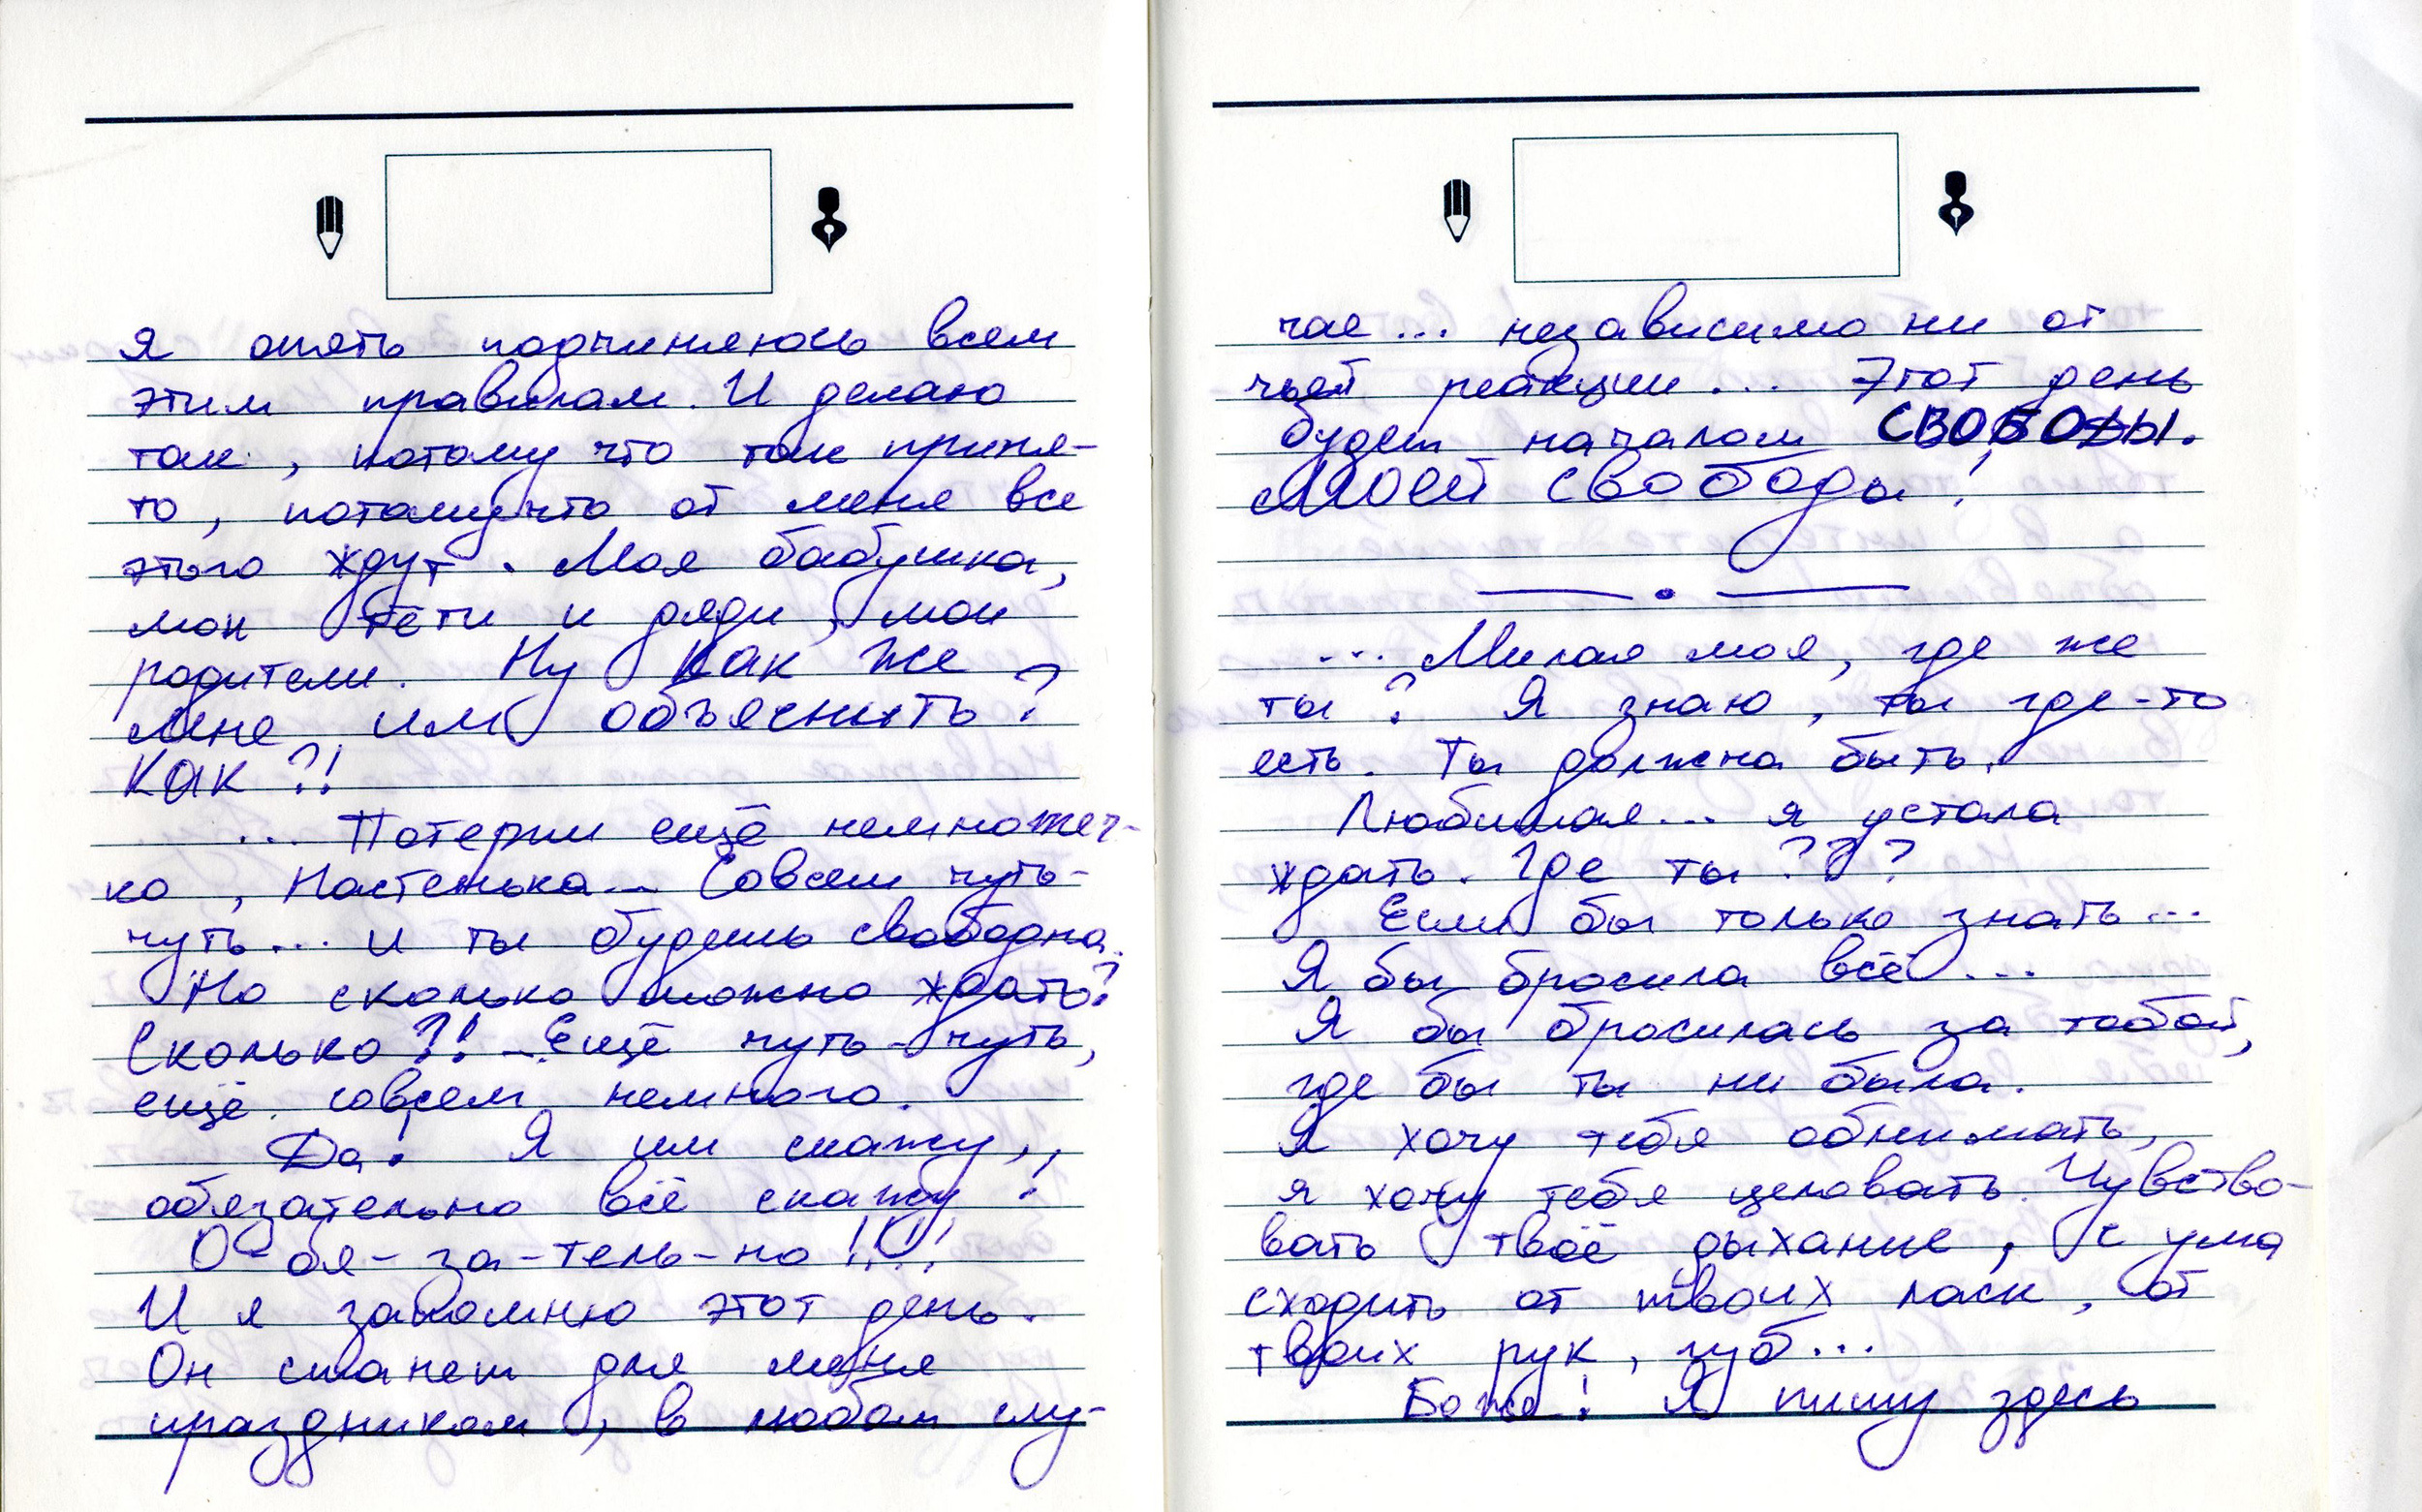 Я опять подчиняюсь всем
этим правилам. И делаю
так, потому что так приня-
то, потому что от меня все
этого ждут. Моя бабушка,
мои тёти и дяди, мои
родители. Ну как же
мне им объяснить?
Как?!
... Потерпи ещё немножеч-
ко, Настенька... Совсем чуть-
чуть... и ты будешь свободна.
Но сколько можно ждать?
Сколько?! ...Ещё чуть-чуть,
ещё совсем немного.
Да! Я им скажу,
обязательно всё скажу!
О-бя-за-тель-но!!!!
И я запомню этот день.
Он станет для меня
праздником, в любом слу-
чае... независимо ни от
чьей реакции... Этот день
будет началом СВОБОДЫ.
Моей свободы!
... Милая моя, где же
ты? Я знаю, ты где-то
есть. Ты должна быть.
Любимая... я устала
ждать. Где ты???
Если бы только знать...
Я бы бросила всё...
Я бы бросилась за тобой,
где бы ты ни была.
Я хочу тебя обнимать,
я хочу тебя целовать. Чувство-
вать твоё дыхание, с ума
сходить от твоих ласк, от
твоих рук, губ...
Боже! Я пишу здесь